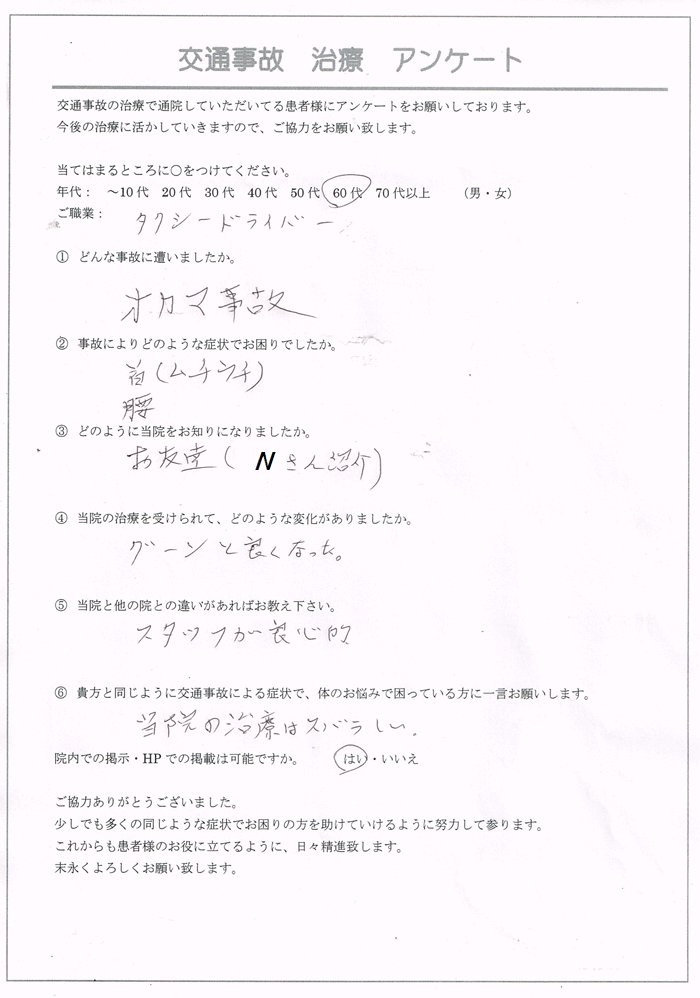 交通事故 治療 アンケート
交通事故の治療で通院していただいてる患者様にアンケートをお願いしております。
今後の治療に活かしていきますので、ご協力をお願い致します。
当てはまるところに〇をつけてください。
年代： ～10代 20代 30代 40代 50代 60代 70代以上 （男・女）
ご職業： タクシードライバー
① どんな事故に遭いましたか。
オカマ事故
② 事故によりどのような症状でお困りでしたか。
首(ムチウチ)
腰
③ どのように当院をお知りになりましたか。
お友達( Nさん紹介)
④ 当院の治療を受けられて、どのような変化がありましたか。
グーンと良くなった。
⑤ 当院と他の院との違いがあればお教え下さい。
スタッフが良心的
⑥ 貴方と同じように交通事故による症状で、体のお悩みで困っている方に一言お願いします。
当院の治療はスバラしい.
院内での掲示・HPでの掲載は可能ですか。 はい・いいえ
ご協力ありがとうございました。
少しでも多くの同じような症状でお困りの方を助けていけるように努力して参ります。
これからも患者様のお役に立てるように、日々精進致します。
末永くよろしくお願い致します。